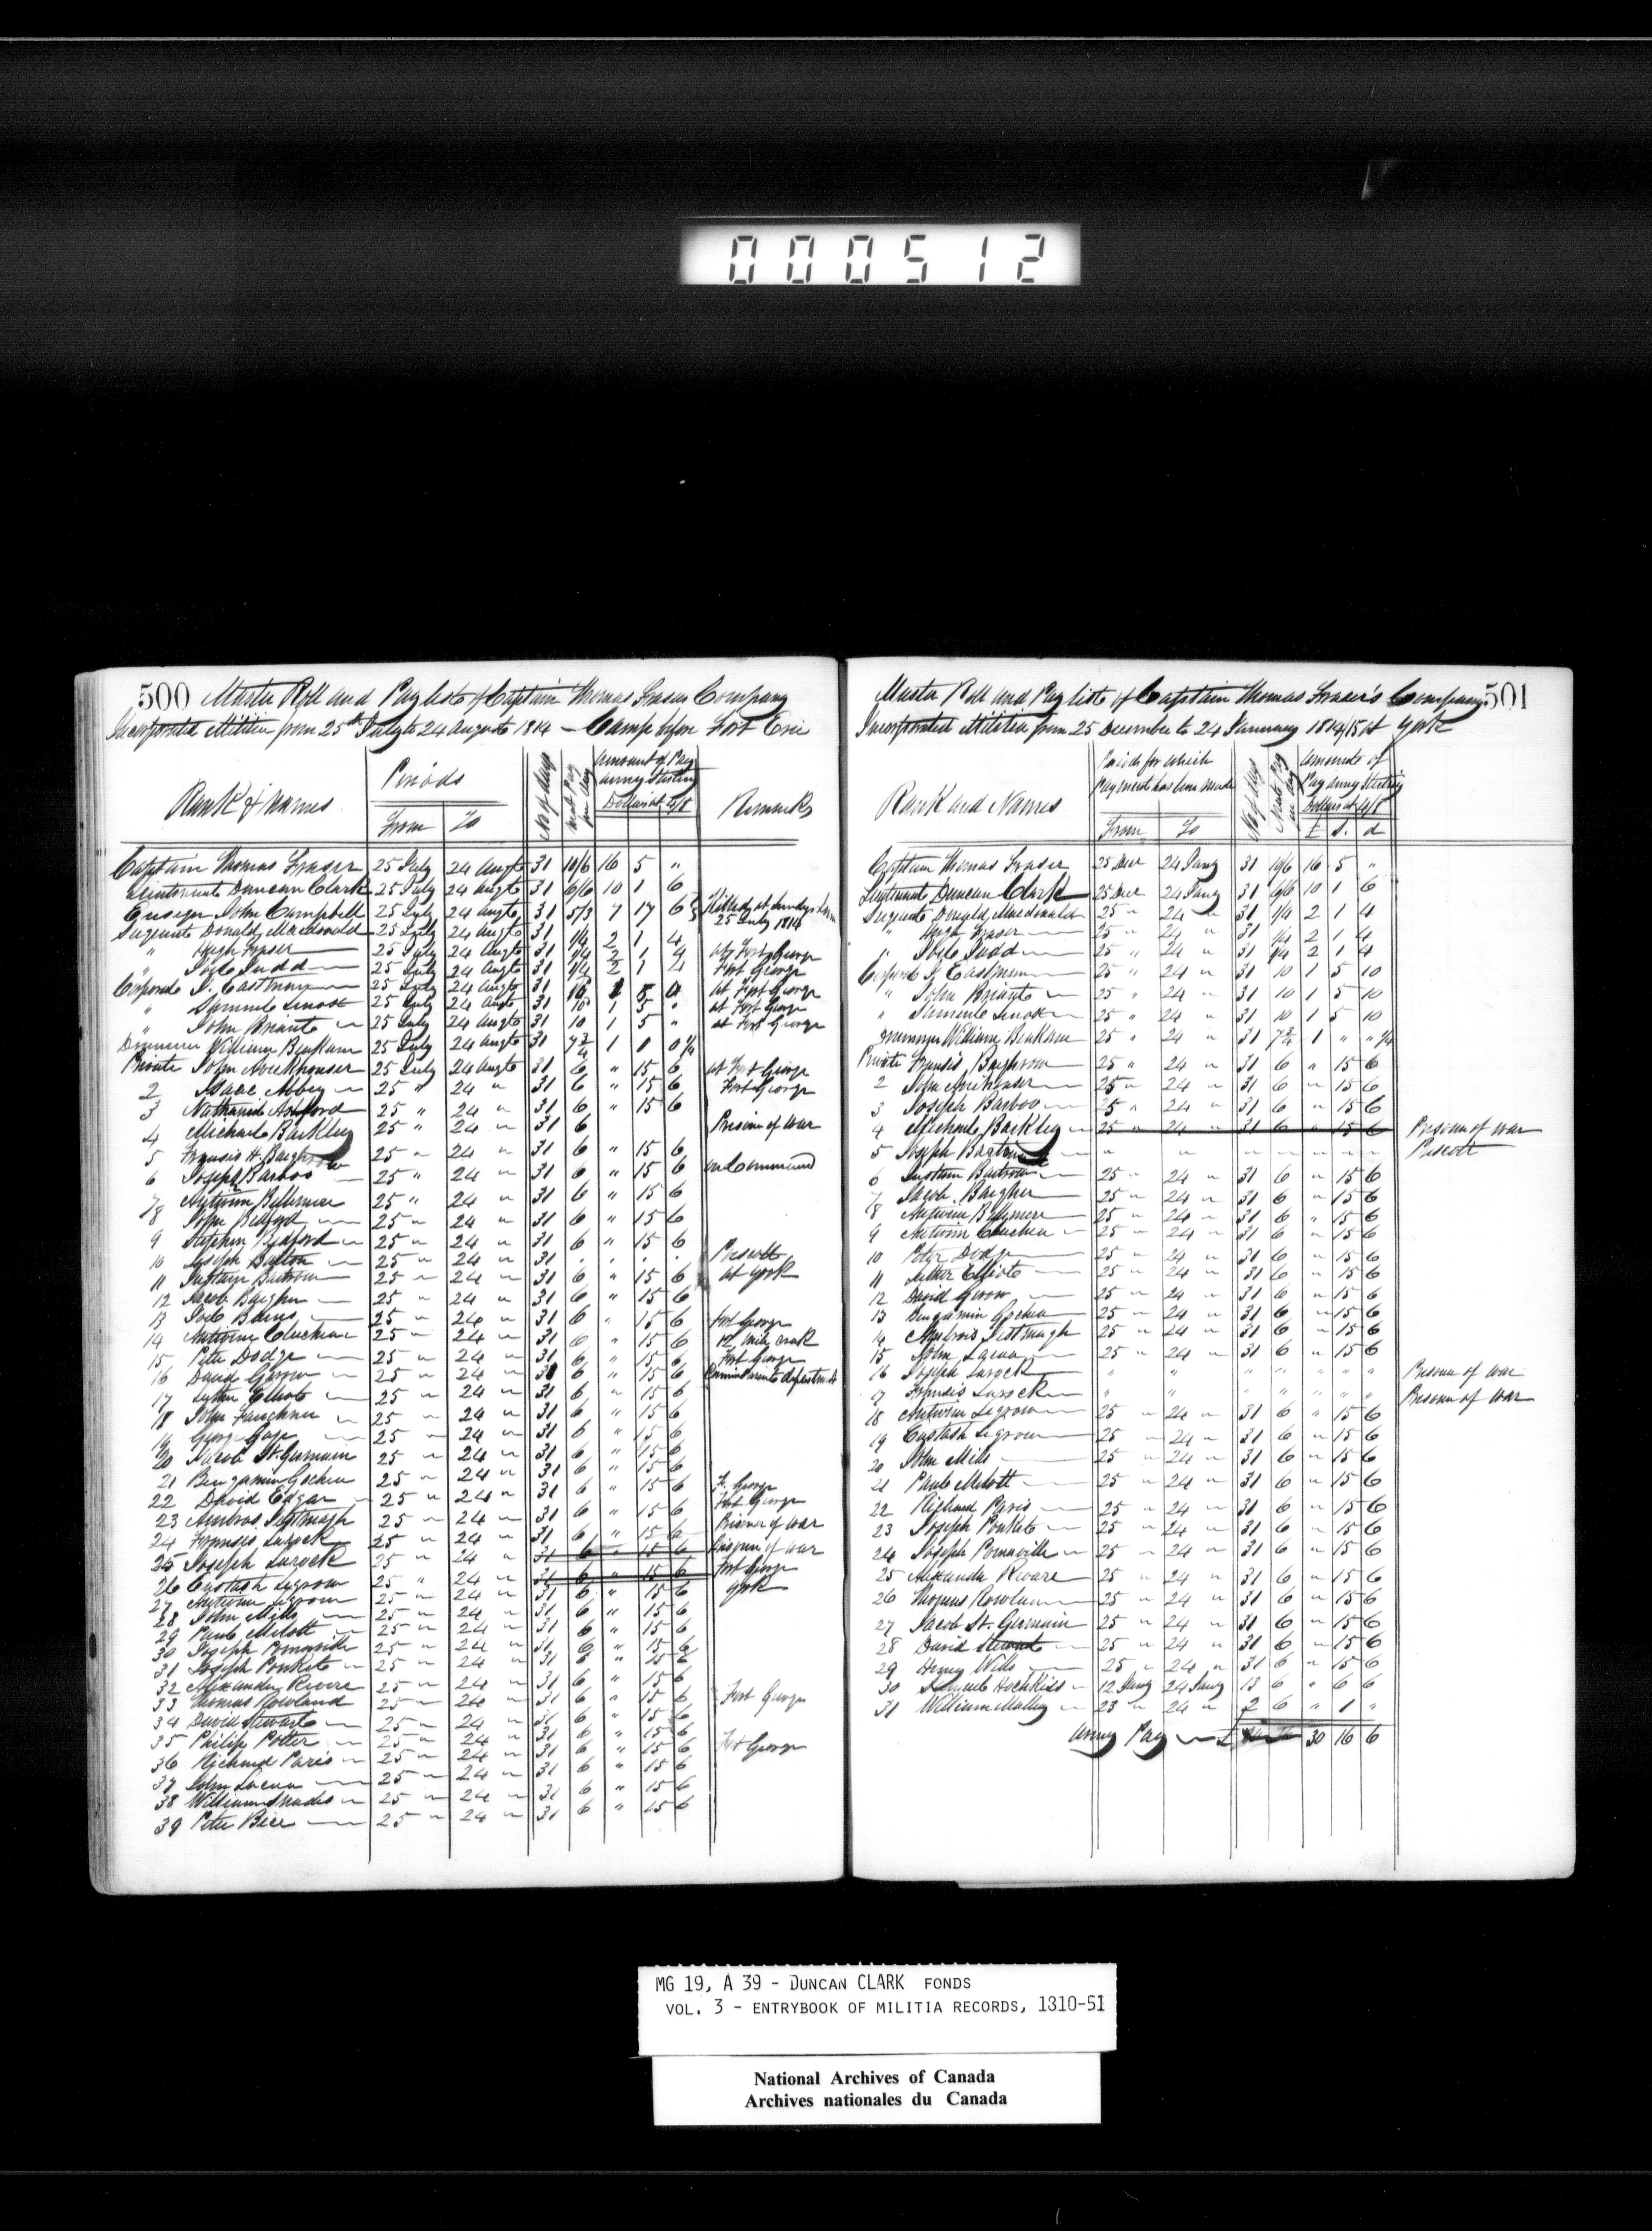 000512
500 Muster Roll and Pay list of Captain Thomas Frasers Company
Incorporated Militia from 25th July to 24 August 1814 - Camp before Fort Erie
Rank & Names Periods No of days Amount of Pay army Sterling Dollars at 4/8 Remarks
From To
Captain Thomas Fraser 25 July 24 Augto 31 10/6 16 5 "
Lieutenant Duncan Clark 25 July 24 Augto 31 6/6 10 1 6
Ensign John Campbell 25 July 24 Augto 31 5/3 7 17 6 Killed at Lundys Lane 25 July 1814
Sergeants Donald Macdonald 25 July 24 Augto 31 1/4 2 1 4
" Hugh Fraser 25 July 24 Augto 31 1/4 2 1 4 at Fort George
" Joel Judd 25 July 24 Augto 31 1/4 2 1 4 Fort George
Corporals J. Eastman 25 July 24 Augto 31 at Fort George
" Samuel 25 July 24 Augto 31 10 1 5 " at Fort George
" John Briant 25 July 24 Augto 31 10 1 5 " at Fort George
Drummer William Benham 25 July 24 Augto 31
Private John 25 July 24 Augto 31 6 " 15 6 at Fort George
2 Isaac Abbey 25 " 24 " 31 6 " 15 6 Fort George
3 Nathaniel Ashford 25 " 24 " 31 6 " 15 6
4 Michael Barkley 25 " 24 " 31 6 Prisoner of War
5 Francis H. 25 " 24 " 31 6 " 15 6
6 Joseph Barboo 25 " 24 " 31 6 " 15 6 on Command
7 25 " 24 " 31 6 " 15 6
8 John Bedford 25 " 24 " 31 6 " 15 6
9 Stephen Bedford 25 " 24 " 31 6 " 15 6
10 Joseph 25 " 24 " 31 Prescott
11 25 " 24 " 31 6 " 15 6 at York
12 Jacob 25 " 24 " 31 6 " 15 6
13 Joel 25 " 24 " 31 6 " 15 6 Fort George
14 Antwine 25 " 24 " 31 6 " 15 6 12 mile creek
15 Peter Dodge 25 " 24 " 31 6 " 15 6 Fort George
16 David Gerow 25 " 24 " 31 6 " 15 6
17 Luther Elliot 25 " 24 " 31 6 " 15 6
18 John Faughner 25 " 24 " 31 6 " 15 6
19 George 25 " 24 " 31 6 " 15 6
20 Jacob St. Germain 25 " 24 " 31 6 " 15 6
21 Benjamin Gochea 25 " 24 " 31 6 " 15 6
22 David Edgar 25 " 24 " 31 6 " 15 6 Ft. George
23 Ambros 25 " 24 " 31 6 " 15 6 Fort George
24 Francis Larock 25 " 24 " 31 6 " 15 6 Prisoner of War
25 Joseph Larock 25 " 24 " 31 6 " 15 6 Prisoner of War
26 Eustash Legrow 25 " 24 " 31 6 " 15 6 Fort George
27 Antwine Legrow 25 " 24 " 31 6 " 15 6 York
28 John Mills 25 " 24 " 31 6 " 15 6
29 Paul Melott 25 " 24 " 31 6 " 15 6
30 Joseph 25 " 24 " 31 6 " 15 6
31 Joseph 25 " 24 " 31 6 " 15 6
32 Alexander Rivare 25 " 24 " 31 6 " 15 6
33 Thomas Rowland 25 " 24 " 31 6 " 15 6 Fort George
34 David Stewart 25 " 24 " 31 6 " 15 6
35 Philip Potter 25 " 24 " 31 6 " 15 6
36 Richard Paris 25 " 24 " 31 6 " 15 6 Fort George
37 John 25 " 24 " 31 6 " 15 6
38 William 25 " 24 " 31 6 " 15 6
39 Peter Bice 25 " 24 " 31 6 " 15 6
Muster Roll and Pay list of Captain Thomas Fraser's Company 501
Incorporated Militia from 25 December to 24 January 1814/15 at York
Rank and Names Periods for which Payment has been made No of days Amounts of Pay Army Sterling Dollars at 4/8
From To £ S. d
Captain Thomas Fraser 25 Decr 24 Jany 31 10/6 16 5 "
Lieutenant Duncan Clark 25 Decr 24 Jany 31 6/6 10 1 6
Sergeants Donald Macdonald 25 " 24 " 31 1/4 2 1 4
" Hugh Fraser 25 " 24 " 31 1/4 2 1 4
" Joel Judd 25 " 24 " 31 1/4 2 1 4
Corporals J. Eastman 25 " 24 " 31 10 1 5 10
" John Briant 25 " 24 " 31 10 1 5 10
" Samuel 25 " 24 " 31 10 1 5 10
Drummer William Benham 25 " 24 " 31
Private Francis 25 " 24 " 31 6 " 15 6
2 John 25 " 24 " 31 6 " 15 6
3 Joseph Barboo 25 " 24 " 31 6 " 15 6
4 Michael Barkley 25 " 24 " 31 6 " 15 6 Prisoner of War
5 Joseph " " " " " " " Prescott
6 25 " 24 " 31 6 " 15 6
7 Jacob 25 " 24 " 31 6 " 15 6
8 Antwine 25 " 24 " 31 6 " 15 6
9 Antwine 25 " 24 " 31 6 " 15 6
10 Peter Dodge 25 " 24 " 31 6 " 15 6
11 Luther Elliot 25 " 24 " 31 6 " 15 6
12 David Gerow 25 " 24 " 31 6 " 15 6
13 Benjamin Gochea 25 " 24 " 31 6 " 15 6
14 Ambrois 25 " 24 " 31 6 " 15 6
15 John 25 " 24 " 31 6 " 15 6
16 Joseph Larock " " " " " " " Prisoner of War
17 Francis Larock " " " " " " " Prisoner of War
18 Antwine Legrow 25 " 24 " 31 6 " 15 6
19 Eustash Legrow 25 " 24 " 31 6 " 15 6
20 John Mills 25 " 24 " 31 6 " 15 6
21 Paul Melott 25 " 24 " 31 6 " 15 6
22 Richard Paris 25 " 24 " 31 6 " 15 6
23 Joseph 25 " 24 " 31 6 " 15 6
24 Joseph 25 " 24 " 31 6 " 15 6
25 Alexander Rivare 25 " 24 " 31 6 " 15 6
26 Thomas Rowland 25 " 24 " 31 6 " 15 6
27 Jacob St. Germain 25 " 24 " 31 6 " 15 6
28 David Stewart 25 " 24 " 31 6 " 15 6
29 Henry Wills 25 " 24 " 31 6 " 15 6
30 Samuel Hochkiss 12 Jany 24 Jany 13 6 " 6 6
31 William Malley 23 " 24 " 2 6 " 1 "
Army Pay £ 30 16 6
MG 19, A 39 - DUNCAN CLARK FONDS
VOL. 3 - ENTRYBOOK OF MILITIA RECORDS, 1810-51
National Archives of Canada
Archives nationales du Canada